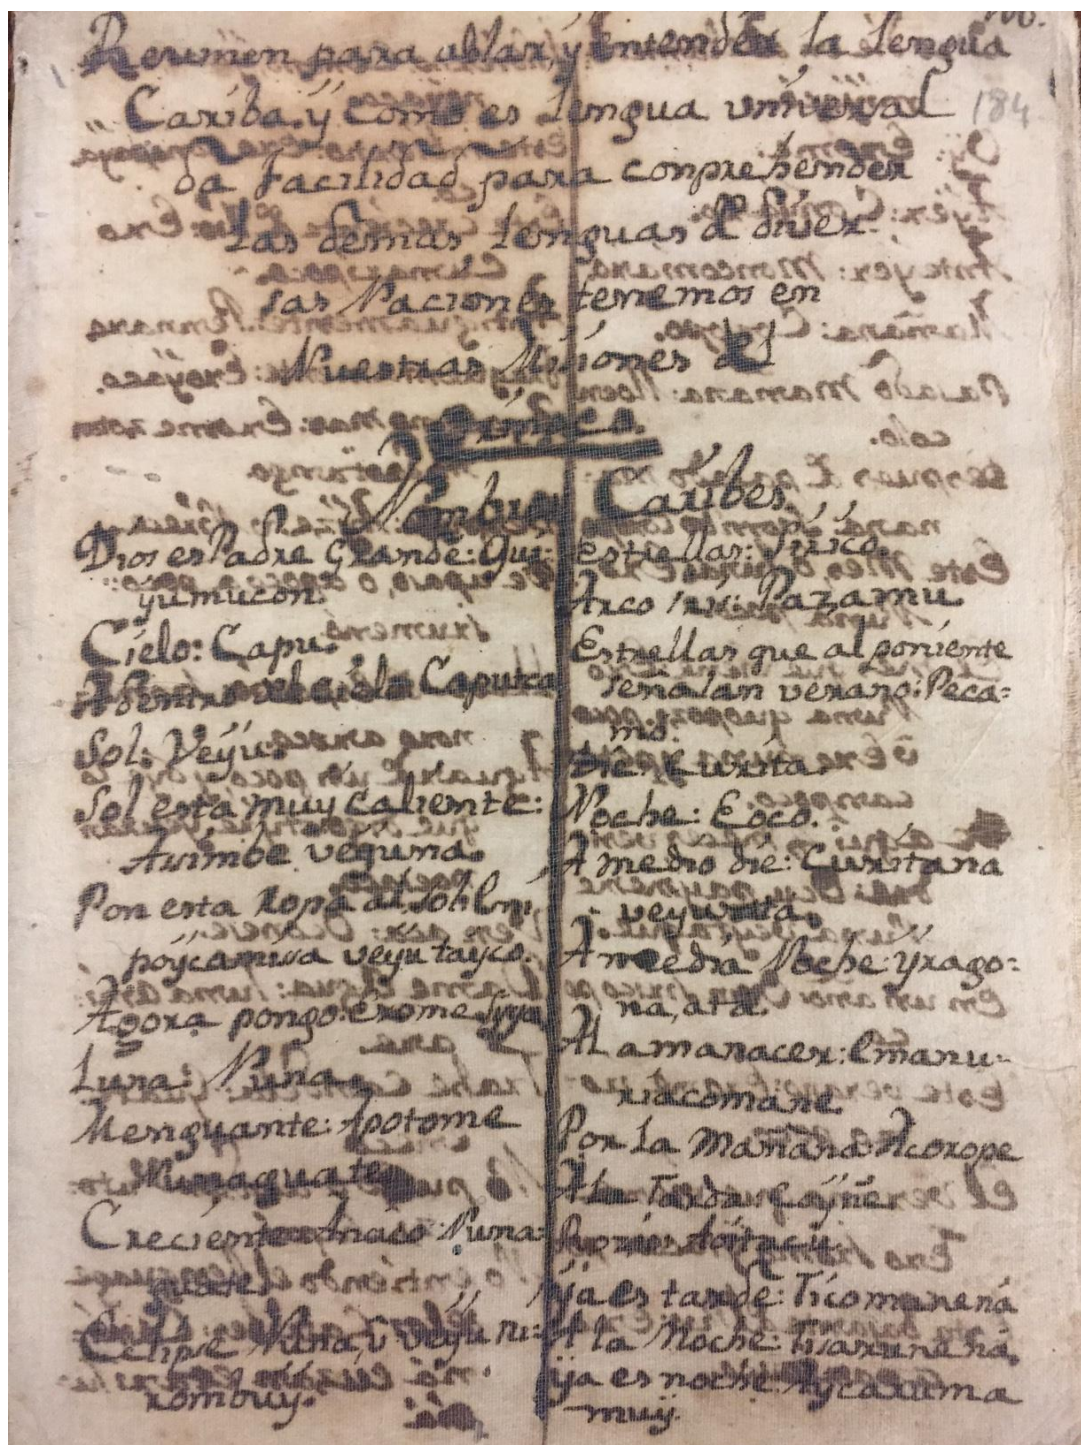 Resumen para ablar, y entender la lengua
Cariba. ÿ como es lengua universal
184
da facilidad para conprehender
las demas lenguas de diver-
sas Naciones tenemos en
Nuestras Misiones del
Nombres Caribes.
Dios es Padre Grande: Qui-
ÿumucon.
Cielo: Capu.
Adentro del cielo Caputa
Sol: Veÿu.
Sol está muy caliente:
Asimbe veyuna.
Pon esta ropa al Sol:
poÿcamisa veÿu taÿco.
Agora pongo: Erome
Luna: Nuna.
Menguante: Apotome
Nunaguate
Creciente: Nuna-
guate
Eclipse Nuna, ü veÿu ni-
rombuÿ.
Estrellas: Sirico.
Arco iris: Paramu
Estrellas que al poniente
señalan verano: Peca-
mo.
Die: Curita.
Noche: Coco.
A medio die: Curitana
A media Noche: ÿrago-
na, ata.
Al amanacer: Emanu-
riacomare
Por la Mañana Acorope
A la Tarde: Coÿñe
ÿa es tarde: Ticomarena
A la Noche: Ticaxunena.
ÿa es noche: Aÿcaxuma
muÿ.